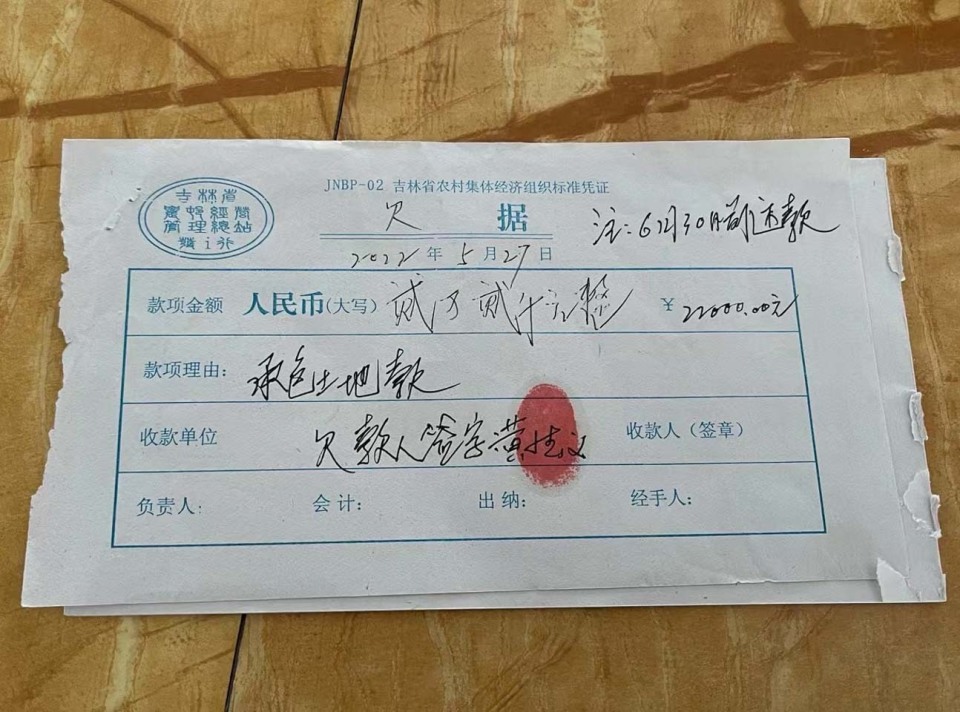 吉林省
農村經濟
管理總站
監制
JNBP-02 吉林省农村集体经济组织标准凭证
欠 据
注:6月30日前还款
2022年5月27日
款项金额 人民币(大写) 贰万贰仟元整 ¥ 22000.00元
款项理由: 承包土地款
收款单位 欠款人签字黄 收款人(签章)
负责人: 会计: 出纳: 经手人: